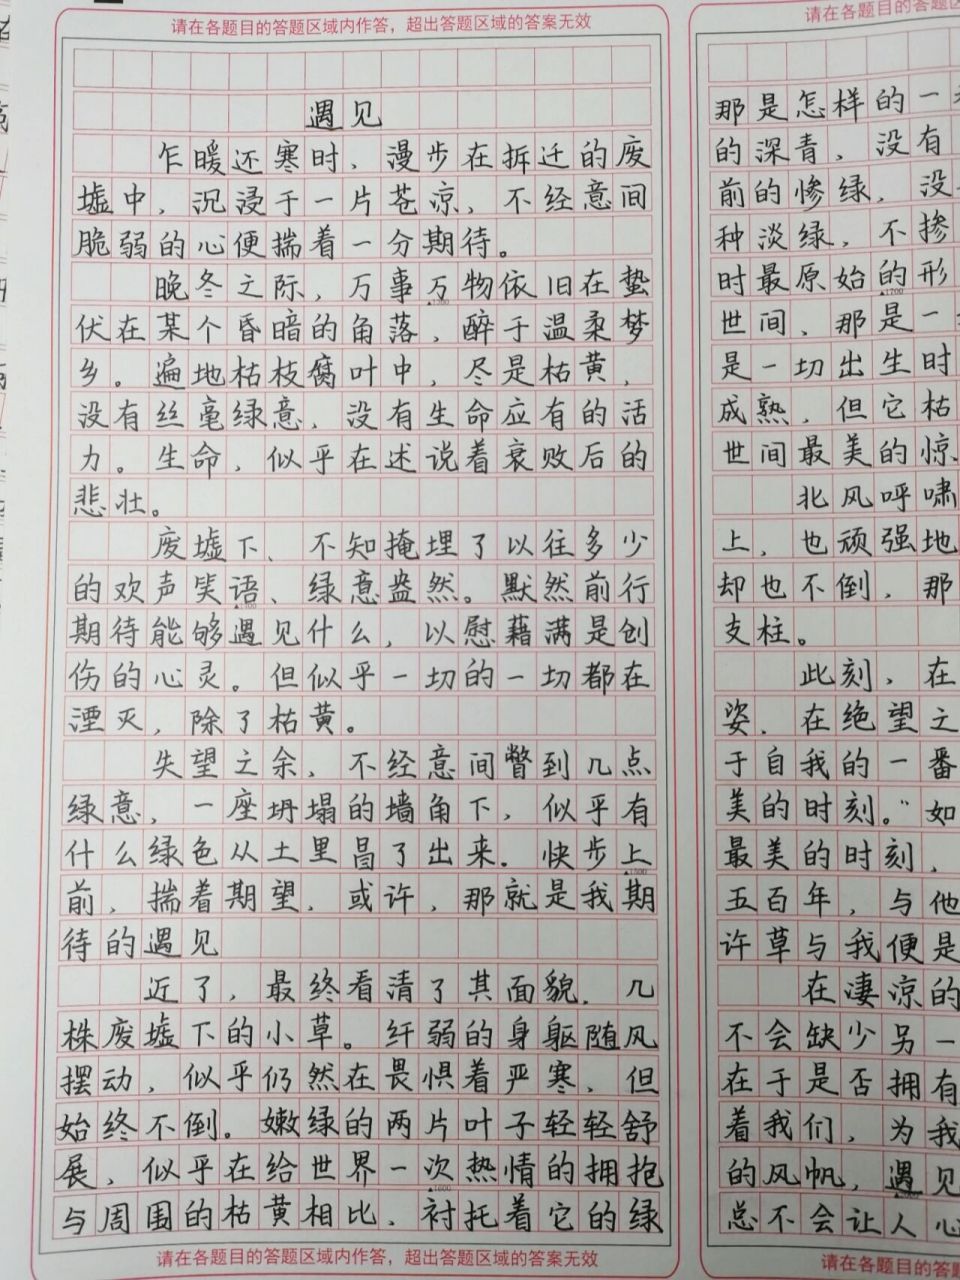 请在各题目的答题区域内作答，超出答题区域的答案无效
遇见
乍暖还寒时，漫步在拆迁的废
墟中，沉浸于一片苍凉，不经意间
脆弱的心便揣着一分期待。
晚冬之际，万事万物依旧在蛰
伏在某个昏暗的角落，醉于温柔梦
乡。遍地枯枝腐叶中，尽是枯黄，
没有丝毫绿意，没有生命应有的活
力。生命，似乎在述说着衰败后的
悲壮。
废墟下、不知掩埋了以往多少
的欢声笑语、绿意盎然。默然前行
期待能够遇见什么，以慰藉满是创
伤的心灵。但似乎一切的一切都在
湮灭，除了枯黄。
失望之余，不经意间瞥到几点
绿意，一座坍塌的墙角下，似乎有
什么绿色从土里冒了出来。快步上
前，揣着期望，或许，那就是我期
待的遇见
近了，最终看清了其面貌．几
株废墟下的小草。纤弱的身躯随风
摆动，似乎仍然在畏惧着严寒，但
始终不倒。嫩绿的两片叶子轻轻舒
展，似乎在给世界一次热情的拥抱
与周围的枯黄相比．衬托着它的绿
请在各题目的答题区域内作答，超出答题区域的答案无效
请在各题目的答题
那是怎样的一
的深青，没有
前的惨绿，没
种淡绿，不掺
时最原始的形
世间、那是一
是一切出生时
成熟，但它枯
世间最美的惊
北风呼啸
上，也顽强地
却也不倒，那
支柱。
此刻，在
姿．在绝望之
于自我的一番
美的时刻。"如
最美的时刻，
五百年，与他
许草与我便是
在凄凉的
不会缺少另一
在于是否拥有
着我们，为我
的风帆，遇见
总不会让人心
请在各题目的答